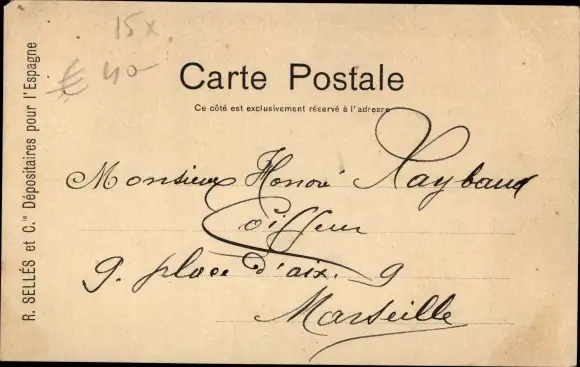 15x
€ 40-
Carte Postale
Ce côté est exclusivement réservé à l'adresse
Monsieur Honoré Raybaud
Coiffeur
9. place d'aix. 9
Marseille
R. SELLÉS et C.ie Dépositaires pour l'Espagne